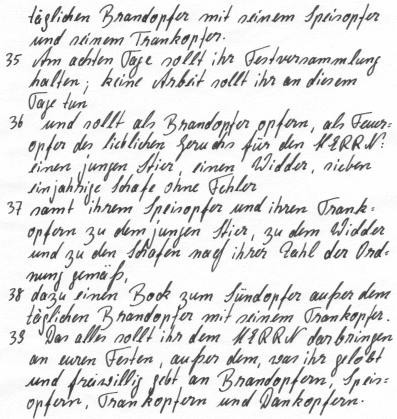 täglichen Brandopfer mit seinem Speisopfer
und seinem Trankopfer.
35 Am achten Tage sollt ihr Festversammlung
halten; keine Arbeit sollt ihr an diesem
Tage tun
36 und sollt als Brandopfer opfern, als Feuer=
opfer des lieblichen Geruchs für den HERRN:
einen jungen Stier, einen Widder, sieben
einjährige Schafe ohne Fehler
37 samt ihrem Speisopfer und ihren Trank=
opfern zu dem jungen Stier, zu dem Widder
und zu den Schafen nach ihrer Zahl der Ord=
nung gemäß,
38 dazu einen Bock zum Sündopfer außer dem
täglichen Brandopfer mit seinem Trankopfer.
39 Das alles sollt ihr dem HERRN darbringen
an euren Festen, außer dem, was ihr gelobt
und freiwillig gebt an Brandopfern, Speis=
opfern, Trankopfern und Dankopfern.